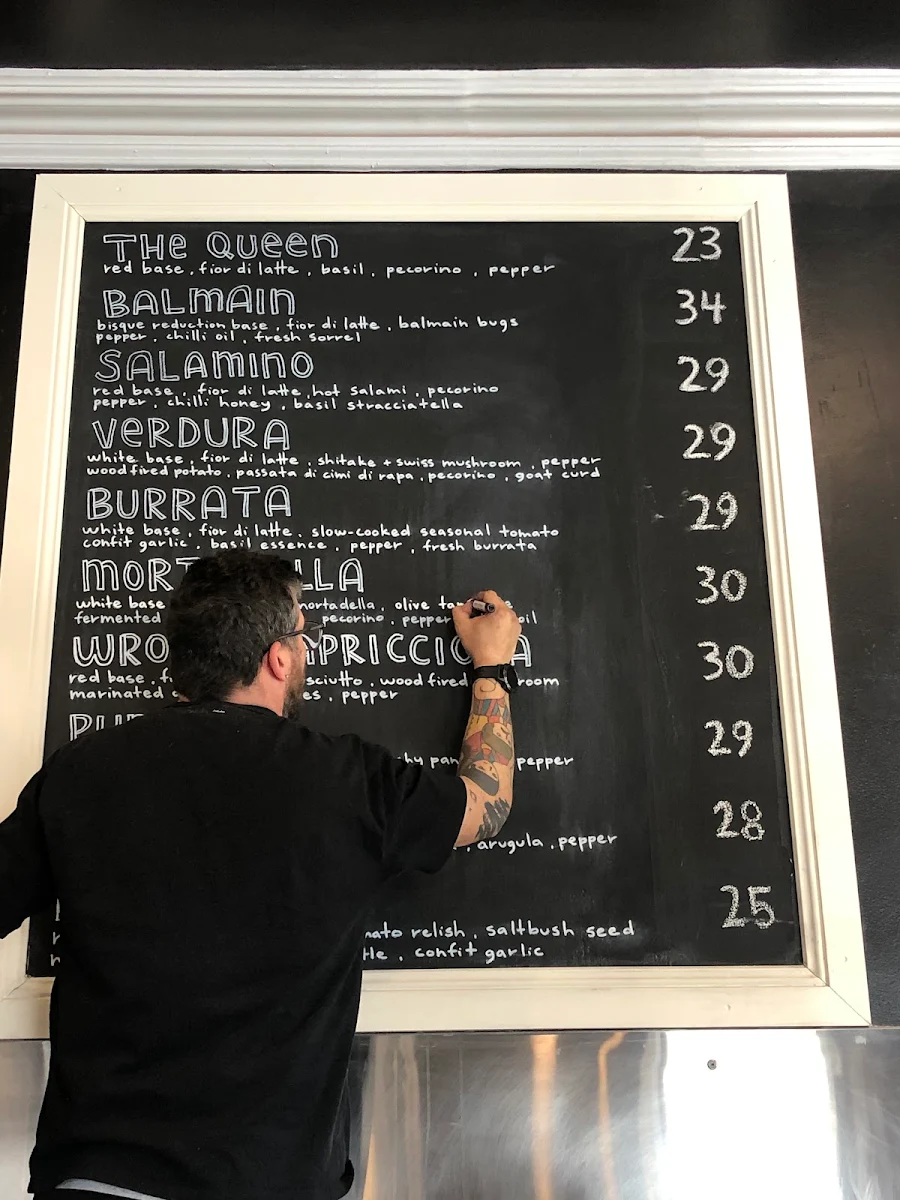 THE QUEEN 23
red base, fior di latte, basil, pecorino, pepper
BALMAIN 34
bisque reduction base, fior di latte, balmain bugs
pepper, chilli oil, fresh sorrel
SALAMINO 29
red base, fior di latte, hot salami, pecorino
pepper, chilli honey, basil stracciatella
VERDURA 29
white base, fior di latte, shitake + swiss mushroom, pepper
wood fired potato, passata di cimi di rapa, pecorino, goat curd
BURRATA 29
white base, fior di latte, slow-cooked seasonal tomato
confit garlic, basil essence, pepper, fresh burrata
30
white base mortadella, olive
fermented pecorino, pepper oil
30
red base, wood fired
marinated pepper
29
pepper
28
, arugula, pepper
25
relish, saltbush seed
, confit garlic